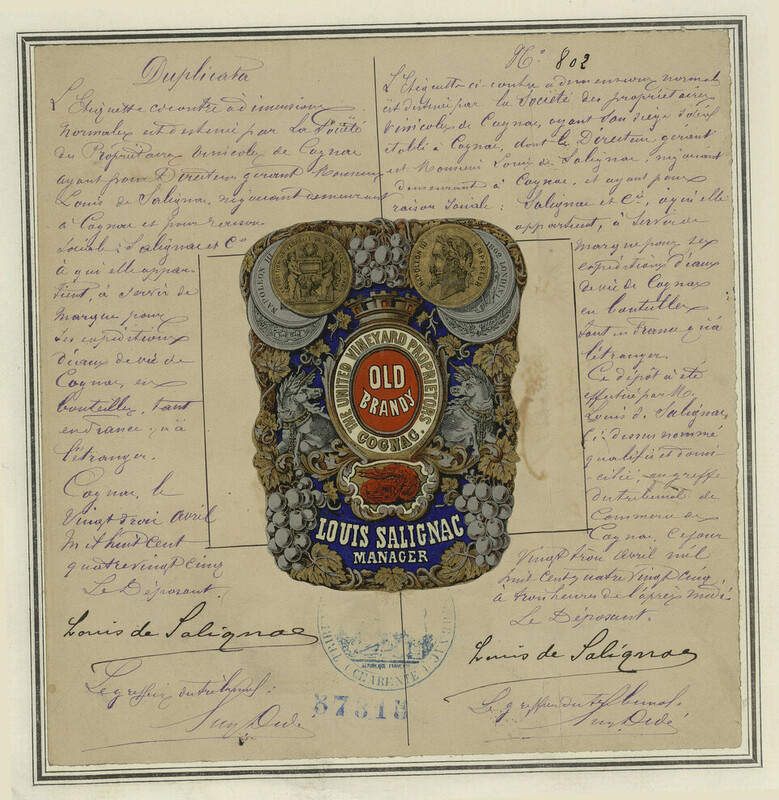 Duplicata
L'Etiquette ci-contre a dimensions
normales est destinée par La Société
des Propriétaires vinicoles de Cognac
ayant pour Directeur gérant Monsieur
Louis de Salignac, négociant demeurant
à Cognac et pour raison
sociale: Salignac et Cie
à qui elle appar-
tient, à servir de
marque pour
ses expéditions
d'eaux de vie de
Cognac, en
bouteilles, tant
en France qu'à
l'étranger.
Cognac, le
Vingt trois avril
mil huit cent
quatre vingt cinq
Le Déposant.
Louis de Salignac
Le greffier du tribunal:
No 802
L'Etiquette ci-contre a dimensions normales
est destinée par la Société des propriétaires
vinicoles de Cognac, ayant son siège social
établi à Cognac, dont le Directeur gérant
est Monsieur Louis de Salignac, négociant
demeurant à Cognac, et ayant pour
raison sociale: Salignac et Cie, à qui elle
appartient, à servir de
marque pour ses
expéditions d'eaux
de vie de Cognac
en bouteilles
tant en France qu'à
l'étranger.
Ce dépôt a été
effectué par M.
Louis de Salignac,
ci-dessus nommé
qualifié et domi-
cilié, au greffe
du tribunal de
Commerce de
Cognac, ce jour
vingt trois avril mil
huit cent quatre vingt cinq,
à trois heures de l'après midi.
Le Déposant.
Louis de Salignac
Le greffier du tribunal.
NAPOLEON III
NAPOLEON III EMPEREUR
1862 LONDRES
THE UNITED VINEYARD PROPRIETORS
OLD
BRANDY
COGNAC
LOUIS SALIGNAC
MANAGER
REPUBLIQUE FRANÇAISE
(CHARENTE)
37313